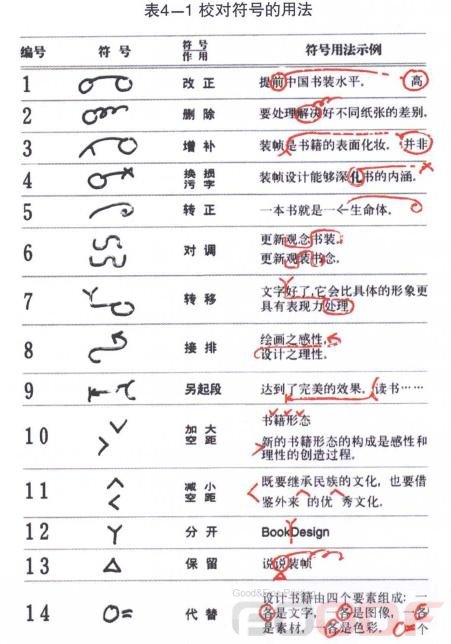 表4—1 校对符号的用法
编号 符号 符号作用 符号用法示例
1 改正 提前中国书装水平. 高
2 删除 要处理解决好不同纸张的差别.
3 增补 装帧是书籍的表面化妆. 并非
4 换损污字 装帧设计能够深化书的内涵.
5 转正 一本书就是一←生命体.
6 对调 更新观念书装.
更新观装书念.
7 转移 文字好了,它会比具体的形象更
具有表现力处理
8 接排 绘画之感性,
设计之理性.
9 另起段 达到了完美的效果. 读书……
10 加大空距 书籍形态
新的书籍形态的构成是感性和
理性的创造过程.
11 减小空距 既要继承民族的文化, 也要借
鉴外来 的优 秀文化.
12 分开 BookDesign
13 保留 说说装帧
14 代替 设计书籍由四个要素组成: 一
各是文字, 一各是图像, 一各
是素材, 一各是色彩. O=个
Good&